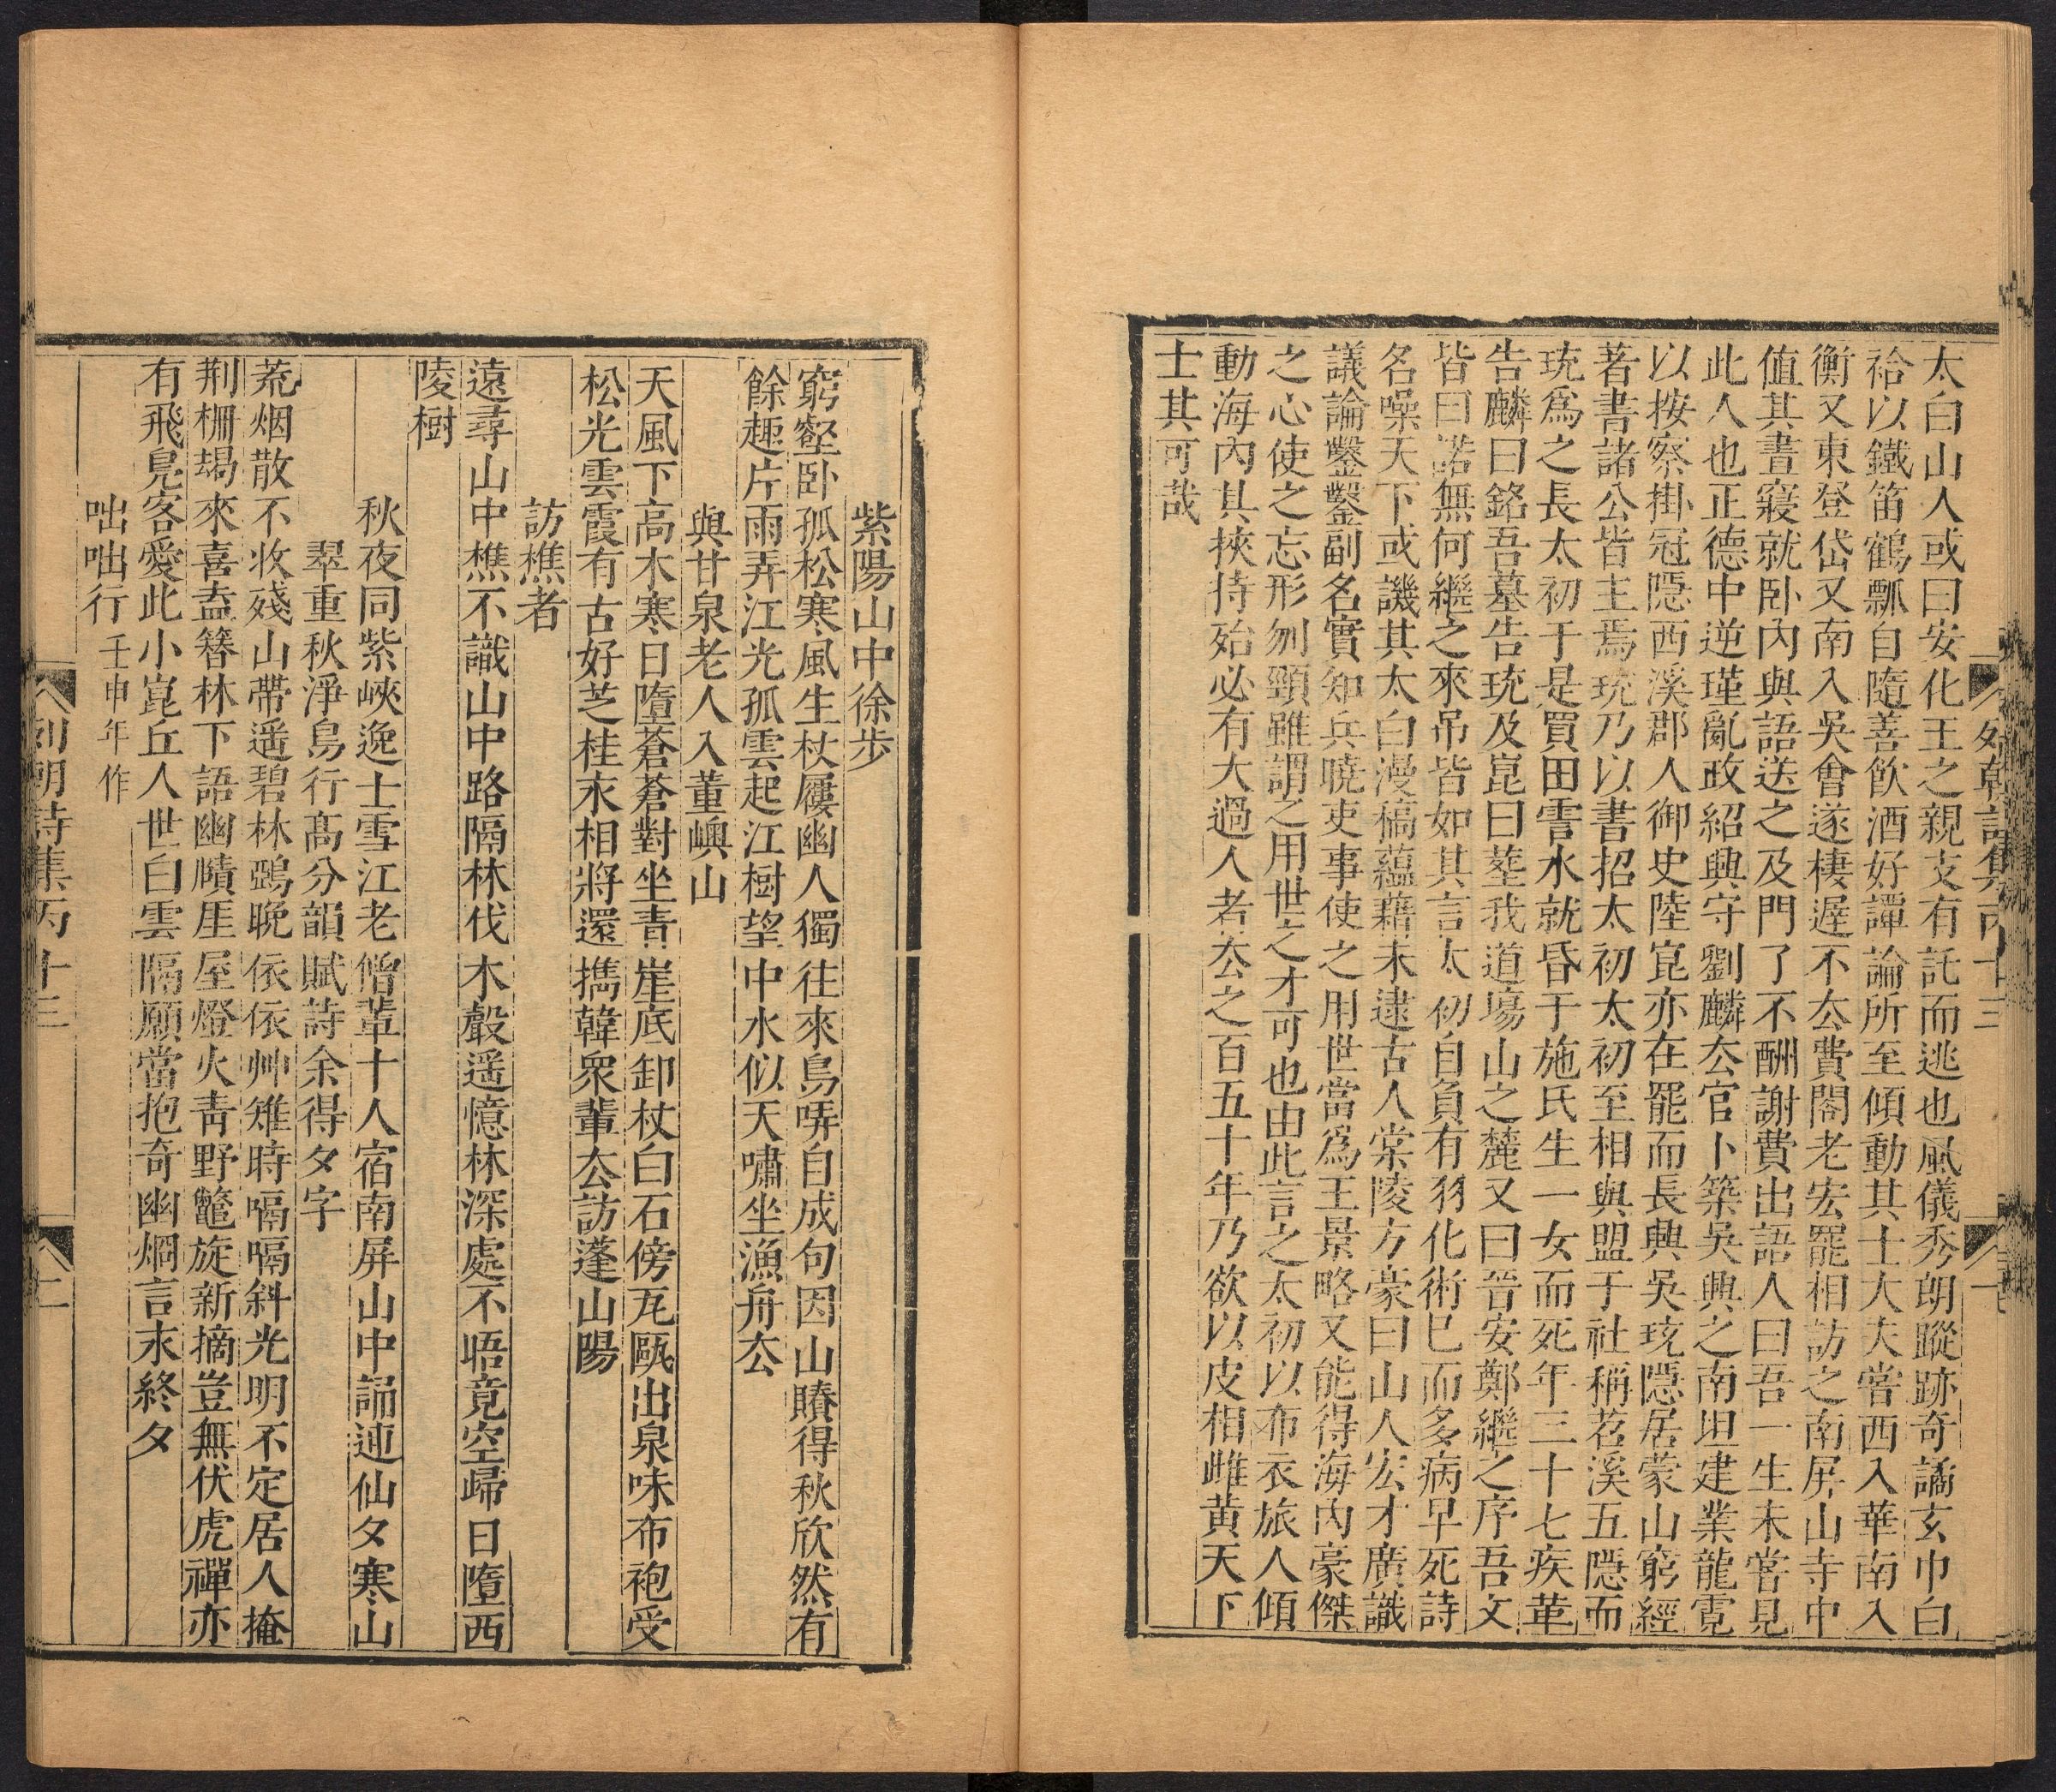 列朝詩集丙十三
一
太白山人或曰安化王之親支有託而逃也風儀秀朗蹤跡奇譎玄巾白
袷以鐵笛鶴瓢自隨善飲酒好譚論所至傾動其士大夫嘗西入華南入
衡又東登岱又南入吳會遂棲遲不厺費閣老宏罷相訪之南屏山寺中
值其晝寢就卧內與語送之及門了不酬謝費出語人曰吾一生未嘗見
此人也正德中逆瑾亂政紹興守劉麟厺官卜築吳興之南坦建業龍霓
以按察掛冠隱西溪郡人御史陸崑亦在罷而長興吳珫隱居蒙山窮經
著書諸公皆主焉珫乃以書招太初太初至相與盟于社稱苕溪五隱而
珫為之長太初于是買田霅水就昏于施氏生一女而死年三十七疾革
告麟曰銘吾墓告珫及崑曰葬我道塲山之麓又曰晉安鄭繼之序吾文
皆曰諾無何繼之來吊皆如其言太初自負有羽化術已而多病早死詩
名噪天下或譏其太白漫槁蘊藉未逮古人棠陵方豪曰山人宏才廣識
議論鑿鑿副名實知兵曉吏事使之用世當為王景略又能得海內豪傑
之心使之忘形刎頸雖謂之用世之才可也由此言之太初以布衣旅人傾
動海內其挾持殆必有大過人者厺之百五十年乃欲以皮相雌黃天下
士其可哉
紫陽山中徐步
窮壑卧孤松寒風生杖屨幽人獨往來鳥哢自成句因山賸得秋欣然有
餘趣片雨弄江光孤雲起江樹望中水似天嘯坐漁舟厺
與甘泉老人入董嶼山
天風下高木寒日墮蒼蒼對坐青崖底卸杖白石傍瓦甌出泉味布袍受
松光雲霞有古好芝桂永相將還擕韓衆輩厺訪蓬山陽
訪樵者
遠尋山中樵不識山中路隔林伐木聲遥憶林深處不晤竟空歸日墮西
陵樹
秋夜同紫峽逸士雪江老僧輩十人宿南屏山中誦連仙夕寒山
翠重秋淨鳥行髙分韻賦詩余得夕字
荒烟散不收殘山帶遥碧林鵶晚依依艸雉時嗝嗝斜光明不定居人掩
荆栅朅來喜盍簪林下語幽賾厓屋燈火靑野鼊旋新摘豈無伏虎禪亦
有飛鳧客愛此小崑丘人世白雲隔願當抱奇幽烱言永終夕
咄咄行 壬申年作
列朝詩集丙十三
二